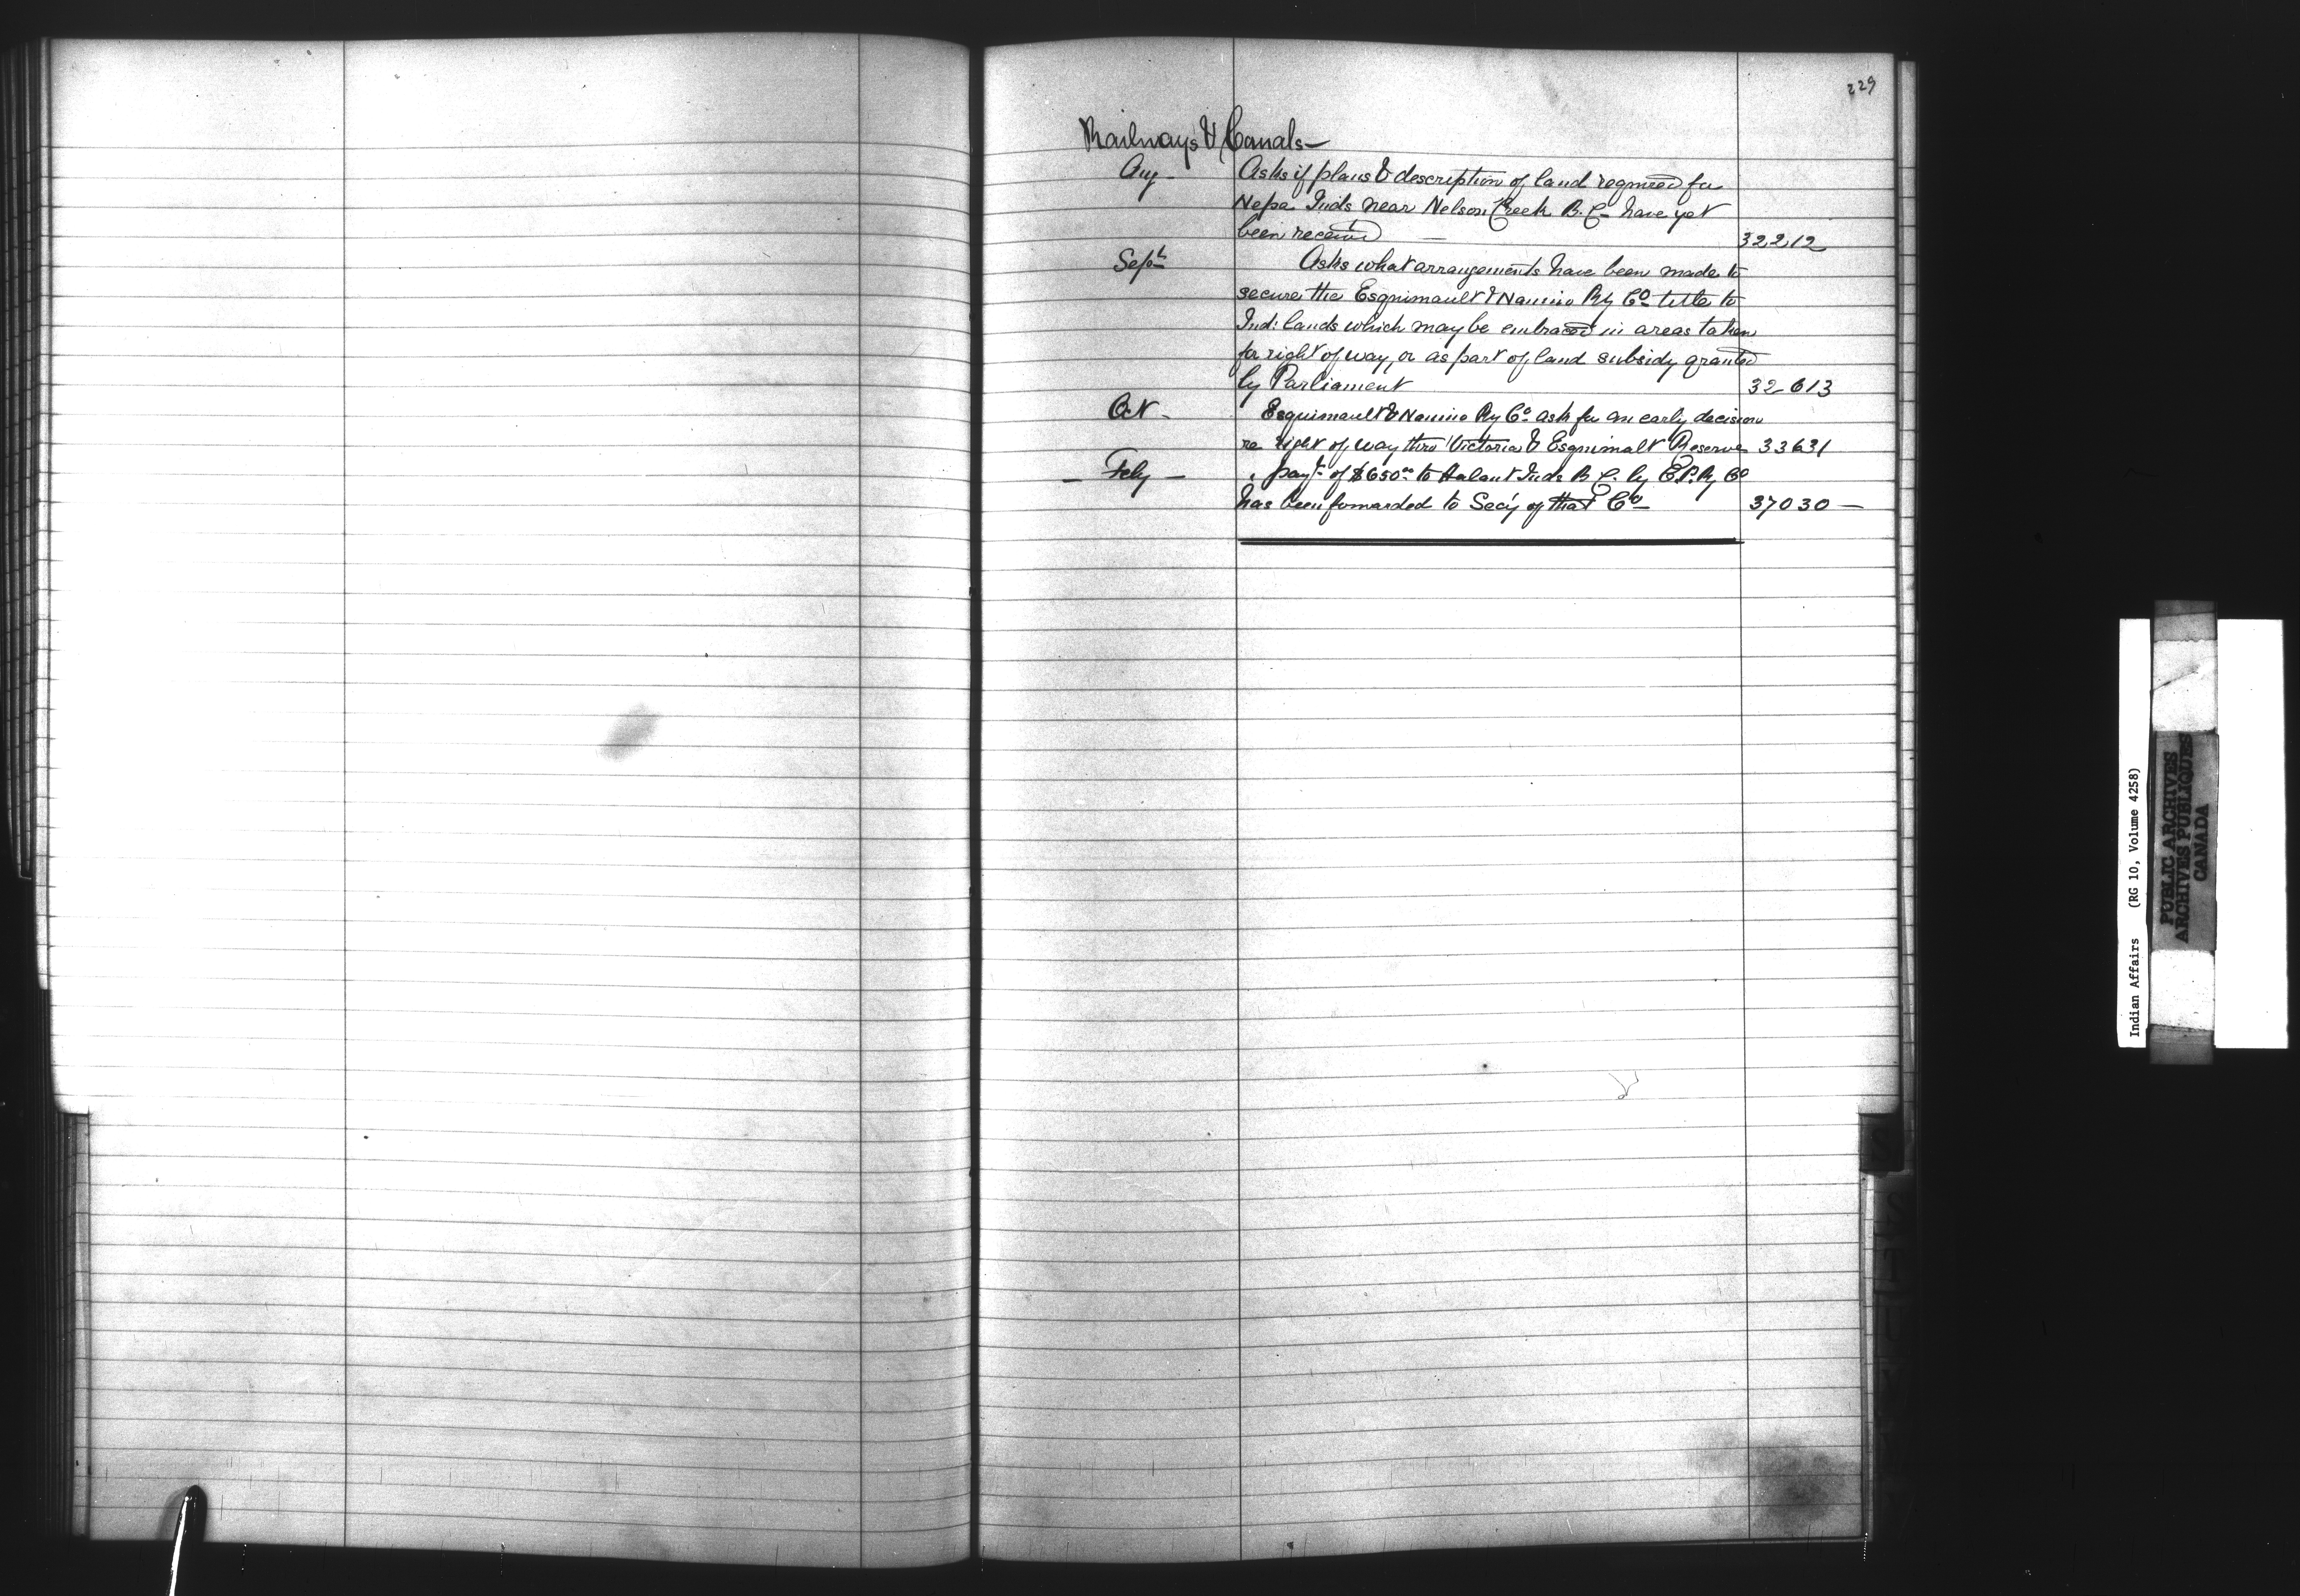 229
Railways & Canals—
Aug- Asks if plans & description of land required for
Nepa Inds near Nelson Creek B.C— have yet
been received — 32212
Sept Asks what arrangements have been made to
secure the Esquimault & Nanimo Ry Co title to
Ind: lands which may be embraced in areas taken
for right of way, or as part of land subsidy granted
by Parliament 32613
Oct- Esquimault & Nanimo Ry Co ask for an early decision
re right of way thro Victoria & Esquimalt Reserve 33631
— Feby — " payt of $650.00 to Inds B.C. by C.P.Ry Co
has been forwarded to Secy of that Co— 37030 —
Indian Affairs (RG 10, Volume 4258)
PUBLIC ARCHIVES
ARCHIVES PUBLIQUES
CANADA